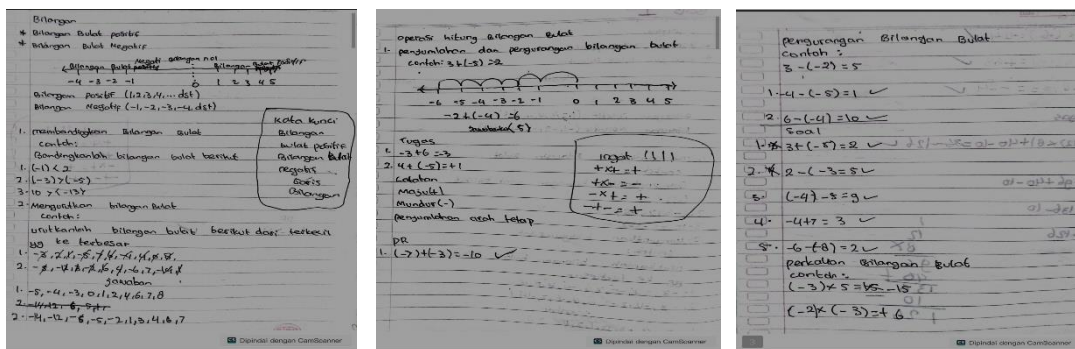 Bilangan
* Bilangan Bulat positif
* Bilangan Bulat Negatif
-4 -3 -2 -1 0 1 2 3 4 5
Bilangan Positif (1,2,3,4,... dst)
Bilangan Negatif (-1,-2,-3,-4, dst)
Kata kunci
Bilangan
bulat positif
Bilangan bulat
negatis
Garis
Bilangan
1. membandingkan Bilangan Bulat
contoh:
Bandingkanlah bilangan bulat berikut
1. (-1) < 2
2. (-3) > (-5)
3. 10 > (-13)
2. Mengurutkan bilangan Bulat
contoh:
urutkanlah bilangan bulat berikut dari terkecil
yg ke terbesar
jawaban
1. -5, -4, -3, 0, 1, 2, 4, 6, 7, 8
2. -14, -12, -6, -5, -2, 1, 3, 4, 6, 7
Dipindai dengan CamScanner
operasi hitung Bilangan Bulat
1. penjumlahan dan pengurangan bilangan bulat
contoh: 3+(-5) = 2
-6 -5 -4 -3 -2 -1 0 1 2 3 4 5
-2+(-4) = 6
Tugas
1. -3+6 = 3
2. 4+(-5) = +1
Catatan
Maju (+)
Mundur (-)
penjumlahan arah tetap
Ingat !!!!
+x+ = +
+x- = -
-x+ = +
-x- = +
PR
1. (-7)+(-3) = -10
Dipindai dengan CamScanner
pengurangan Bilangan Bulat
contoh:
3-(-2) = 5
1. -4-(-5) = 1
2. 6-(-4) = 10
Soal
1. 3+(-5) = 2
2. 2-(-3 = 5
3. (-4)-5 = 9
4. -4+7 = 3
5. -6-(-8) = 2
perkalian Bilangan Bulat
contoh:
(-3) x 5 = 15 -15
(-2) x (-3) = + 6
Dipindai dengan CamScanner